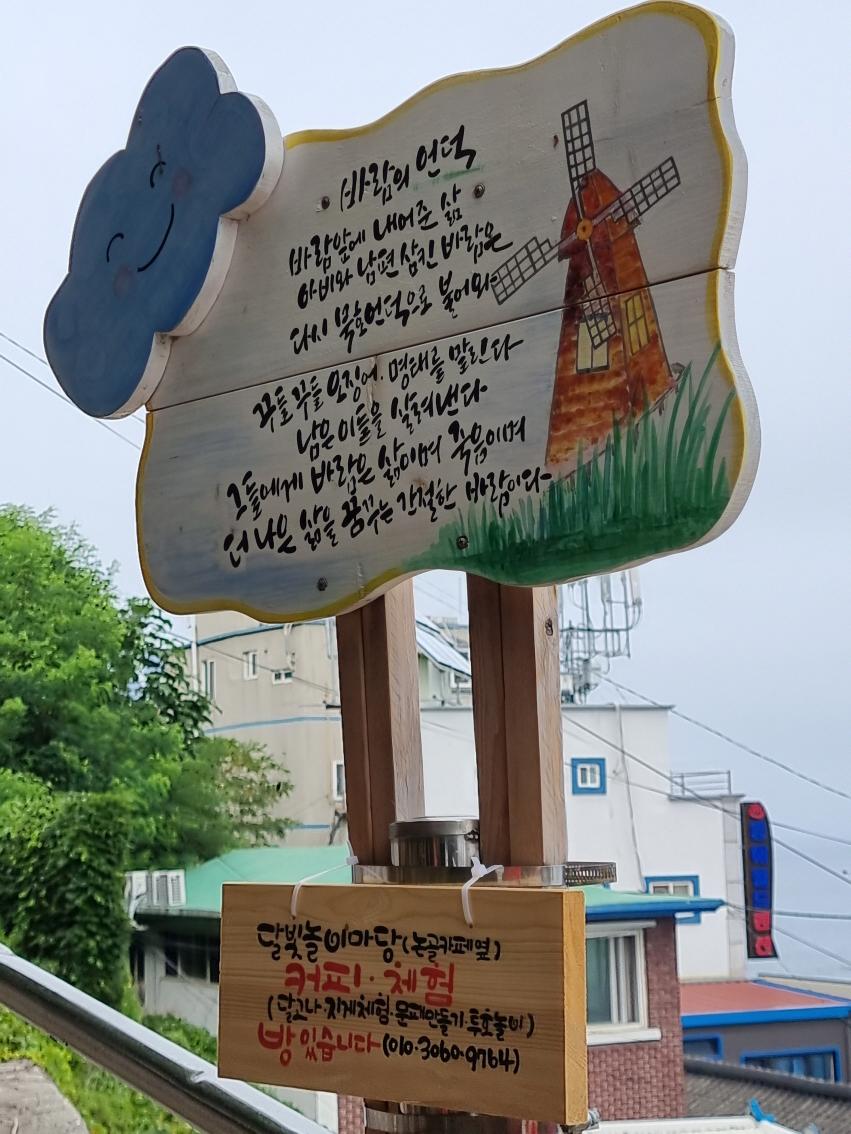 바람의 언덕
바람앞에 내어준 삶
아비와 남편 삼킨 바람은
다시 묵호언덕으로 불어와
꾸들꾸들 오징어, 명태를 말린다
남은 이들을 살려낸다
그들에게 바람은 삶이며 죽음이며
더 나은 삶을 꿈꾸는 간절한 바람이다
달빛놀이마당(논골카페옆)
커피·체험
(달고나·지게체험·문패만들기·투호놀이)
방있습니다(010·3060·9764)